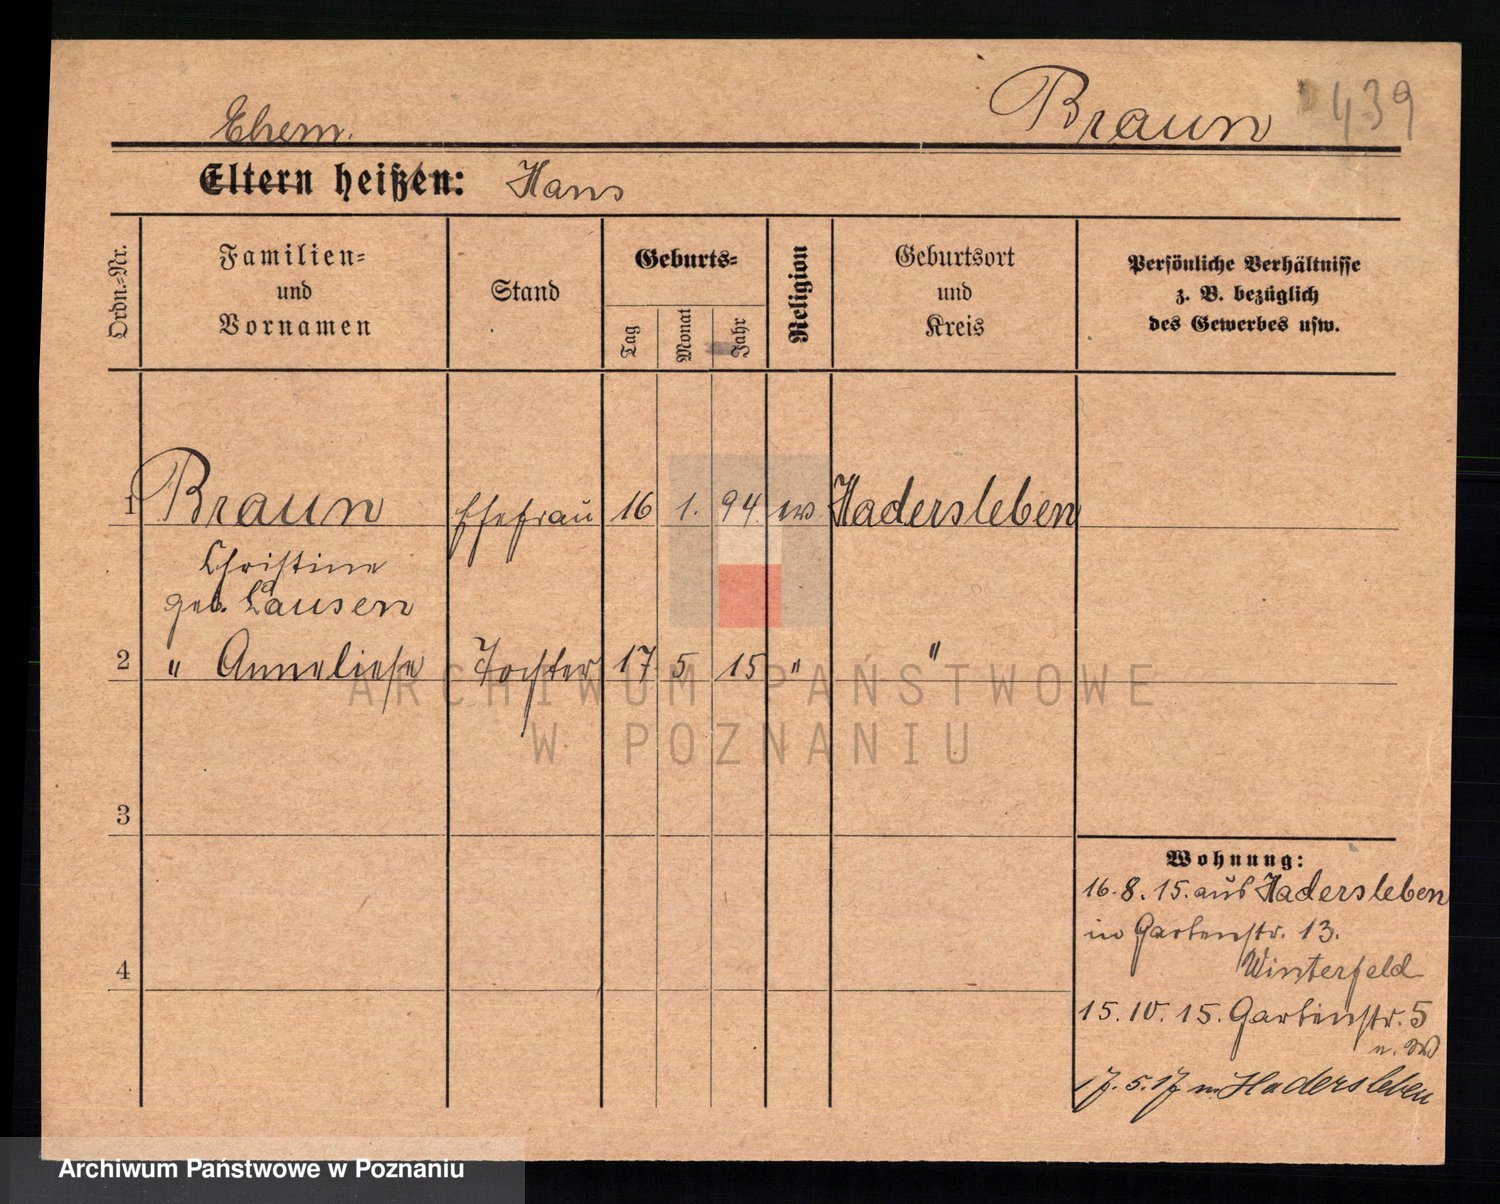 Braun 439
Ehem.
Eltern heißen: Hans
Ordn.=Nr.
Familien=
und
Vornamen
Stand
Geburts=
Tag
Monat
Jahr
Religion
Geburtsort
und
Kreis
Persönliche Verhältnisse
z. B. bezüglich
des Gewerbes usw.
1 Braun Ehefrau 16 1. 94. ev. Hadersleben
Christine
geb. Lausen
2 " Anneliese Tochter 17 5 15 " "
3
4
Wohnung:
16.8.15. aus Hadersleben
in Gartenstr. 13.
Winterfeld
15.10.15. Gartenstr. 5
17.5.17 n Hadersleben
ARCHIWUM PAŃSTWOWE
W POZNANIU
Archiwum Państwowe w Poznaniu